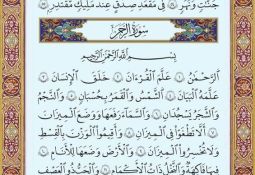 جَنَّٰتٍ وَنَهَرٍ ۝ فِى مَقْعَدِ صِدْقٍ عِندَ مَلِيكٍ مُّقْتَدِرٍۭ ۝
سُورَةُ الرَّحْمَٰن
بِسْمِ ٱللَّهِ ٱلرَّحْمَٰنِ ٱلرَّحِيمِ
ٱلرَّحْمَٰنُ ۝ عَلَّمَ ٱلْقُرْءَانَ ۝ خَلَقَ ٱلْإِنسَٰنَ ۝
عَلَّمَهُ ٱلْبَيَانَ ۝ ٱلشَّمْسُ وَٱلْقَمَرُ بِحُسْبَانٍ ۝ وَٱلنَّجْمُ
وَٱلشَّجَرُ يَسْجُدَانِ ۝ وَٱلسَّمَآءَ رَفَعَهَا وَوَضَعَ ٱلْمِيزَانَ
۝ أَلَّا تَطْغَوْا۟ فِى ٱلْمِيزَانِ ۝ وَأَقِيمُوا۟ ٱلْوَزْنَ بِٱلْقِسْطِ
وَلَا تُخْسِرُوا۟ ٱلْمِيزَانَ ۝ وَٱلْأَرْضَ وَضَعَهَا لِلْأَنَامِ ۝
فِيهَا فَٰكِهَةٌ وَٱلنَّخْلُ ذَاتُ ٱلْأَكْمَامِ ۝ وَٱلْحَبُّ ذُو ٱلْعَصْفِ